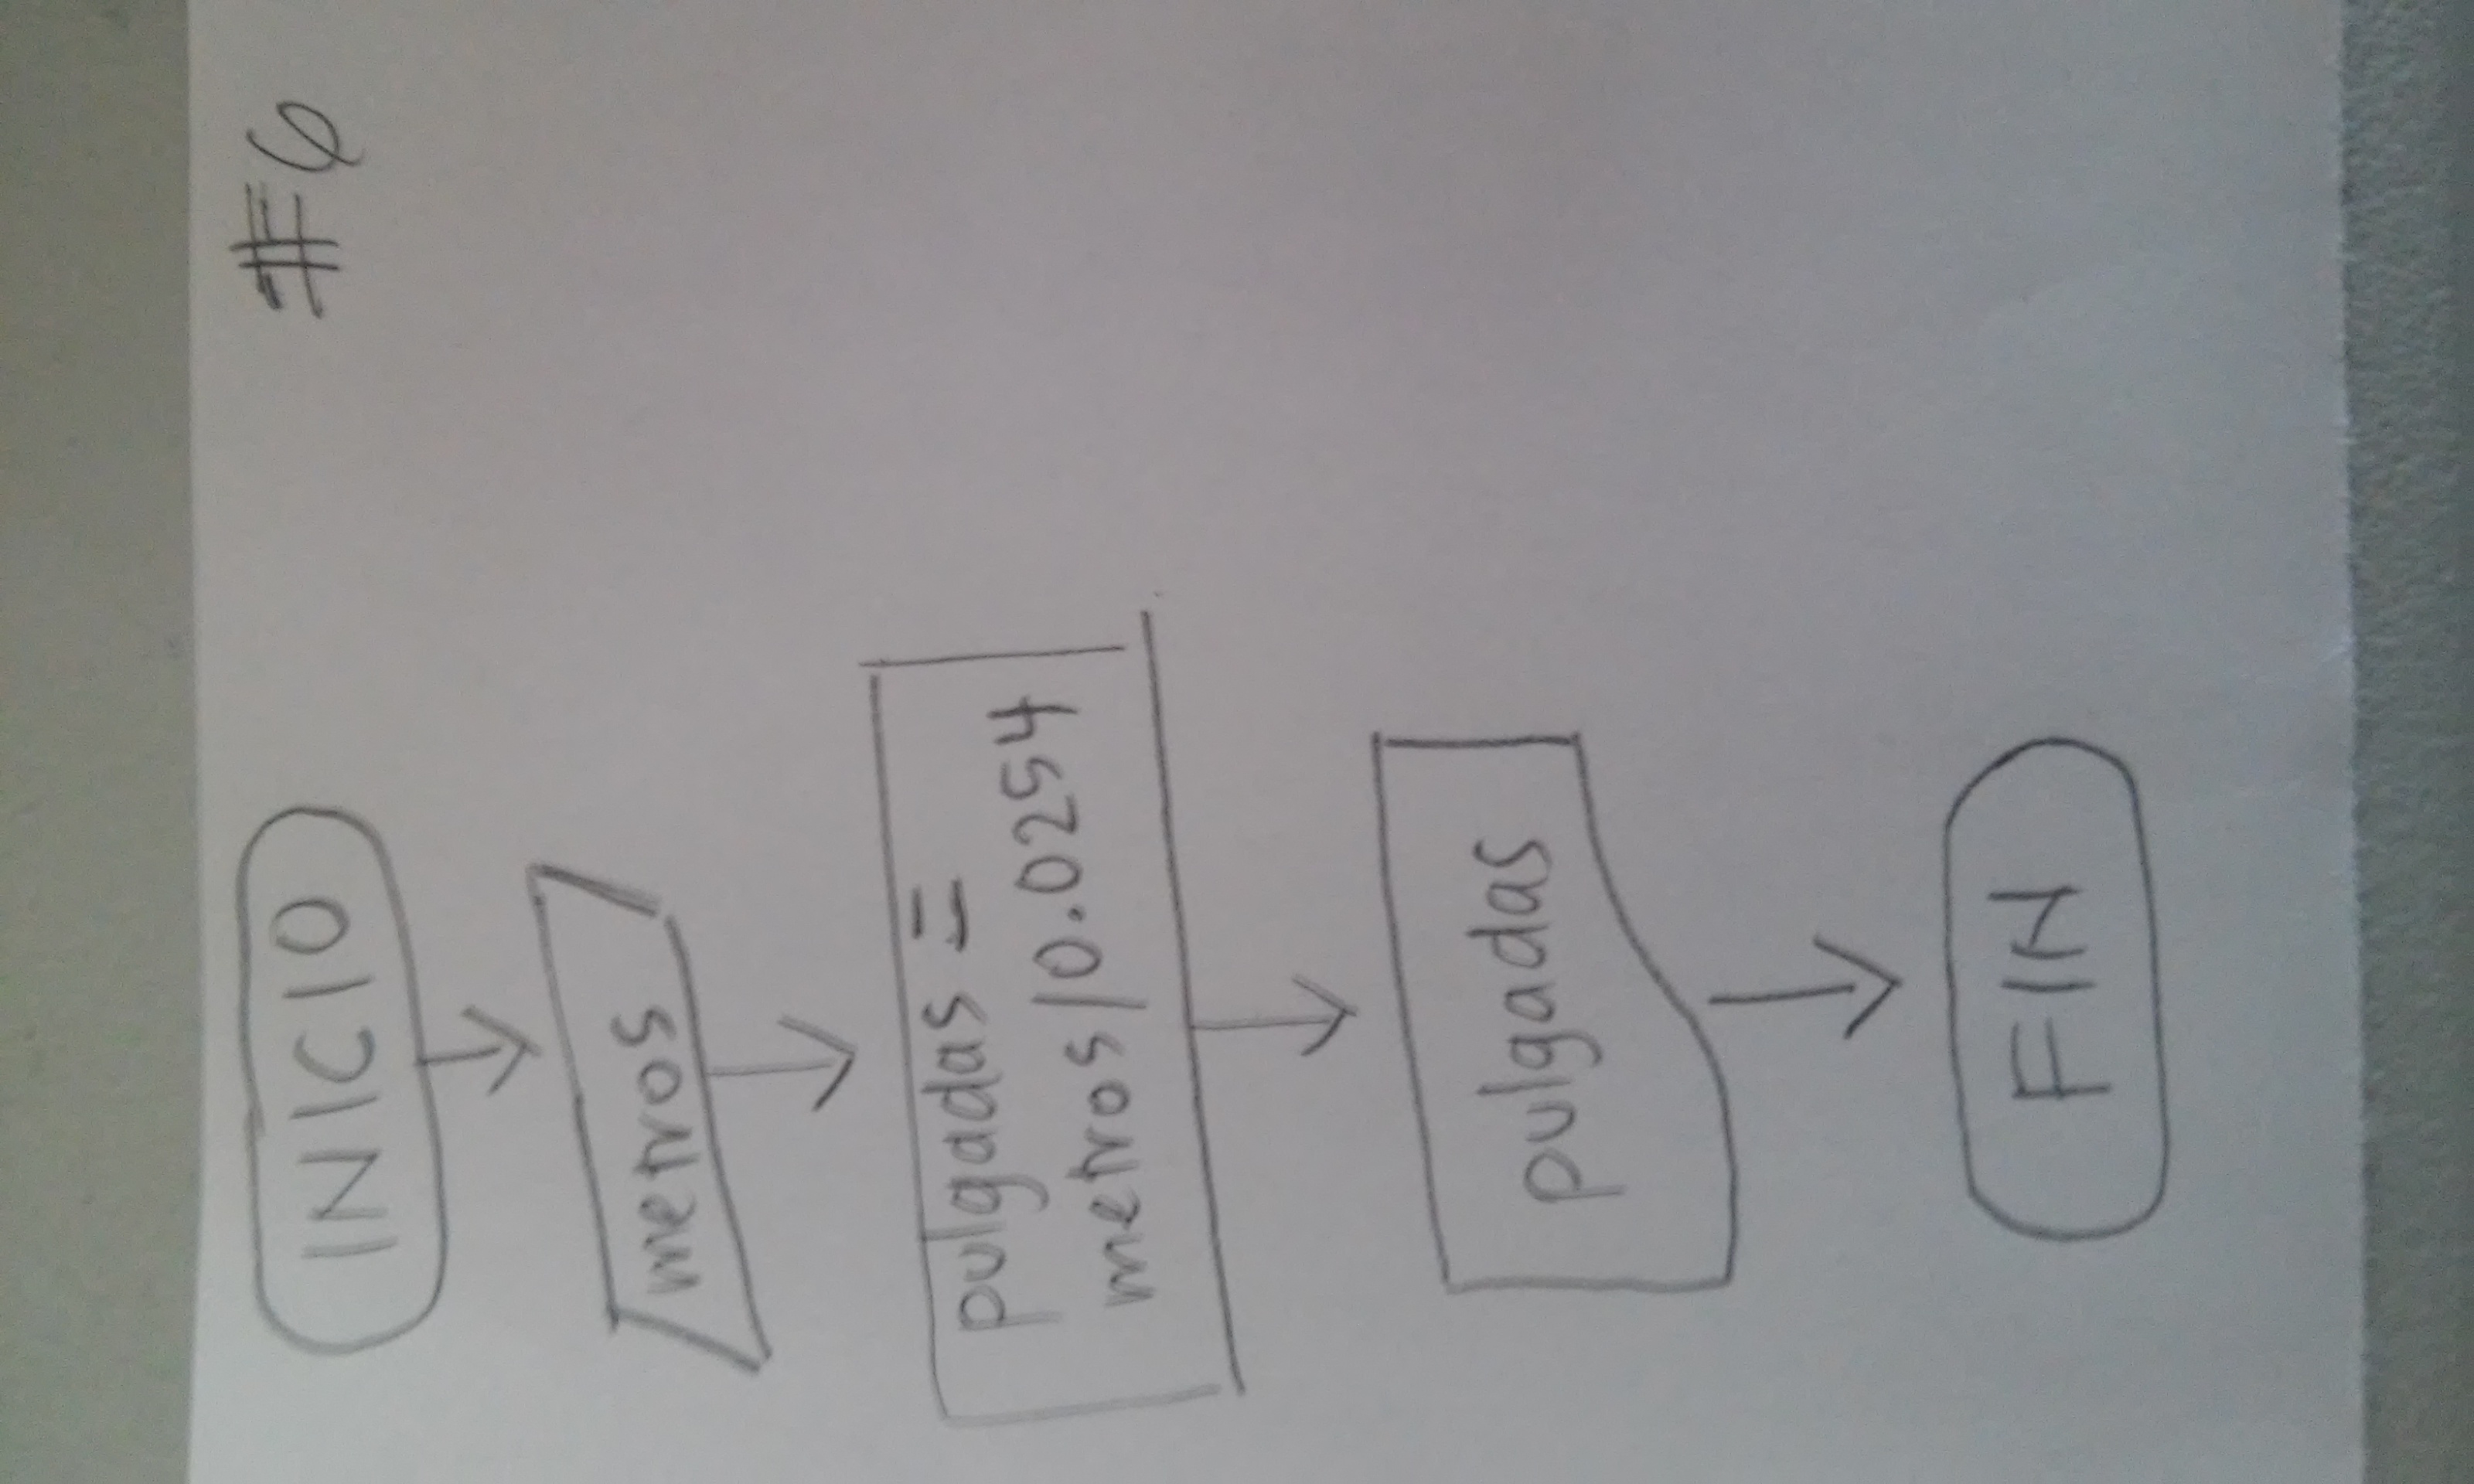 #6
INICIO
metros
pulgadas =
metros/0.0254
pulgadas
FIN